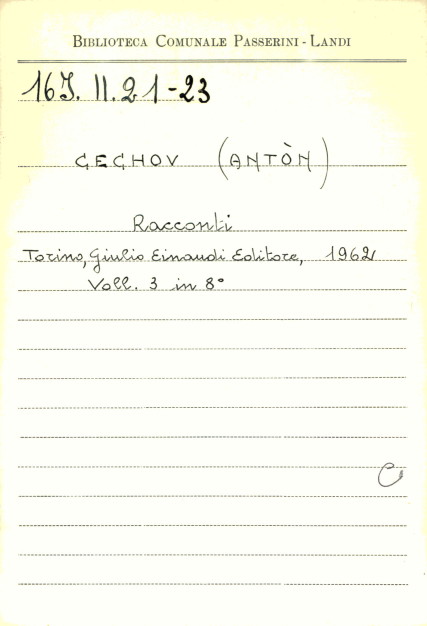 BIBLIOTECA COMUNALE PASSERINI - LANDI
16J. II. 21-23
CECHOV (ANTÒN)
Racconti
Torino, Giulio Einaudi Editore, 1962
Voll. 3 in 8°
C